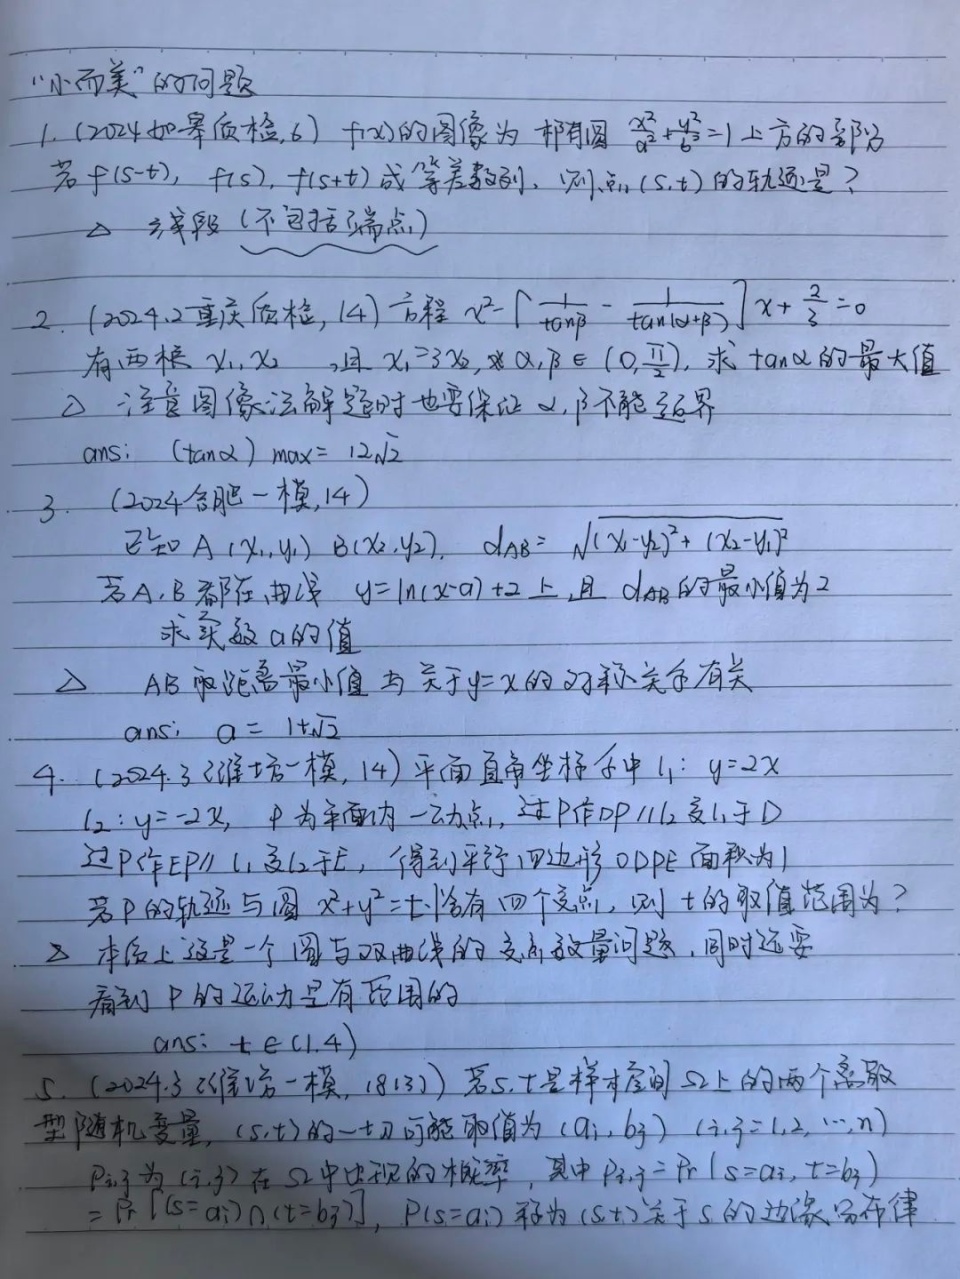 "小而美"的问题
1. (2024如皋质检,6) f(x)的图像为椭圆 x²/a²+y²/b²=1上方的部分
若f(s-t), f(s), f(s+t)成等差数列, 则点(s,t)的轨迹是?
△ 线段(不包括端点)
2. (2024.2重庆质检,14)方程 x²-[1/tanβ - 1/tan(α+β)]x+2/3=0
有两根 x₁,x₂ ,且 x₁=3x₂, α,β∈(0,π/2), 求tanα的最大值
△ 注意图像法解题时也要保证α,β不能越界
ans: (tanα)max= 12√2
3. (2024合肥一模,14)
已知A(x₁,y₁) B(x₂,y₂), dAB=√(x₁-y₂)²+(x₂-y₁)²
若A,B都在曲线 y=ln(x-a)+2上,且dAB的最小值为2
求实数a的值
△ AB 距离最小值与关于y=x的对称关系有关
ans: a= 1+√2
4. (2024.3潍坊一模,14)平面直角坐标系中l₁: y=2x
l₂:y=-2x, P为平面内一动点,过P作DP//l₂交l₁于D
过P作EP//l₁交l₂于E, 得到平行四边形ODPE面积为1
若P的轨迹与圆x²+y²=t恰有四个交点,则t的取值范围为?
△ 本质上这是一个圆与双曲线的交点数量问题,同时还要
看到P的运动是有范围的
ans: t∈(1,4)
5. (2024.3潍坊一模,18(3))若s,t是样本空间Ω上的两个离散
型随机变量, (s,t)的一切可能取值为(ai,bj) (i,j=1,2,…,n)
Pi,j为(i,j)在Ω中出现的概率,其中Pi,j=Pr(s=ai,t=bj)
=Pr[(s=ai)∩(t=bj)], P(s=ai)称为(s,t)关于s的边缘分布律